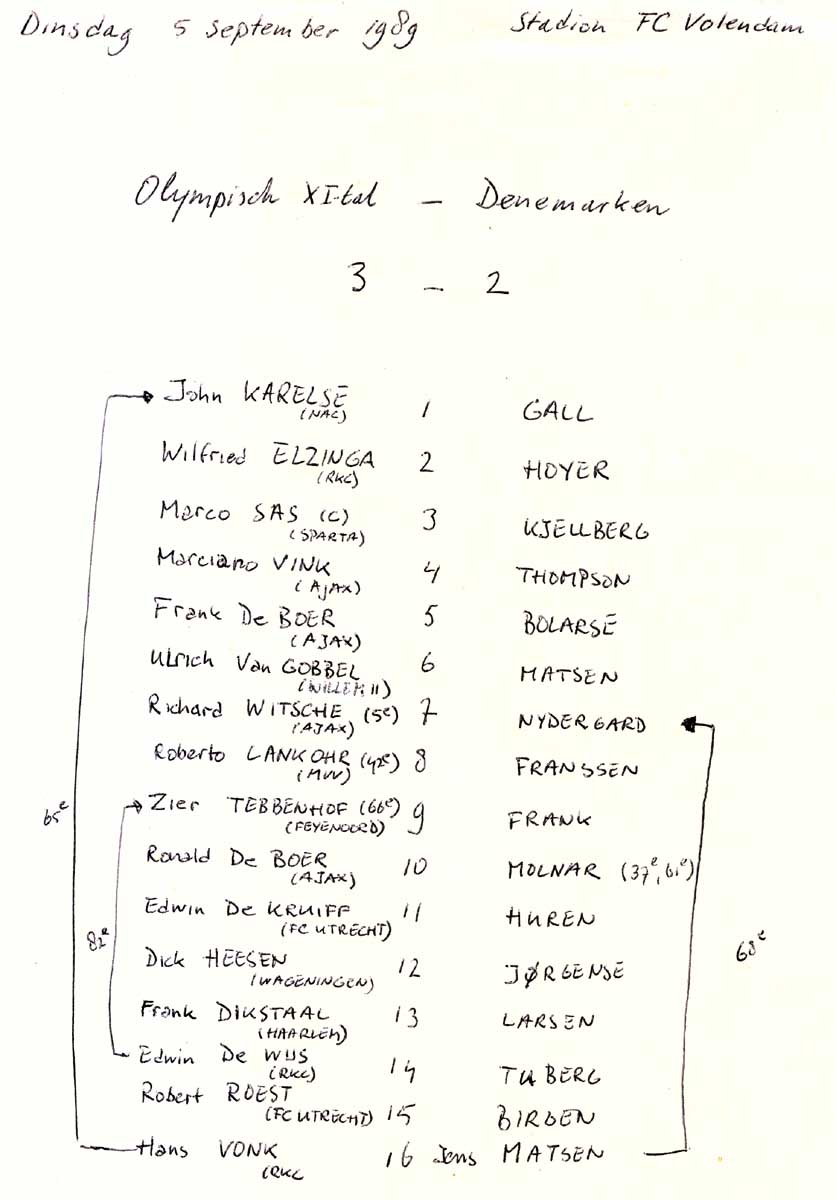 Dinsdag 5 September 1989 Stadion FC Volendam
Olympisch XI-tal - Denemarken
3 - 2
John KARELSE 1 GALL
(NAC)
Wilfried ELZINGA 2 HOYER
(RKC)
Marco SAS (C) 3 KJELLBERG
(SPARTA)
Marciano VINK 4 THOMPSON
(AJAX)
Frank De BOER 5 BOLARSE
(AJAX)
Ulrich Van GOBBEL 6 MATSEN
(WILLEM II)
Richard WITSCHE (5e) 7 NYDERGARD
(AJAX)
Roberto LANKOHR (42e) 8 FRANSSEN
(MVV)
Zier TEBBENHOF (66e) 9 FRANK
(FEYENOORD)
65e
Ronald De BOER 10 MOLNAR (37e, 61e)
(AJAX)
Edwin De KRUIFF 11 HUREN
(FC UTRECHT)
82e
68e
Dick HEESEN 12 JØRGENSE
(WAGENINGEN)
Frank DIKSTAAL 13 LARSEN
(HAARLEM)
Edwin De WIJS 14 TUBERG
(RKC)
Robert ROEST 15 BIRGEN
(FC UTRECHT)
Hans VONK 16 Jens MATSEN
(RKC